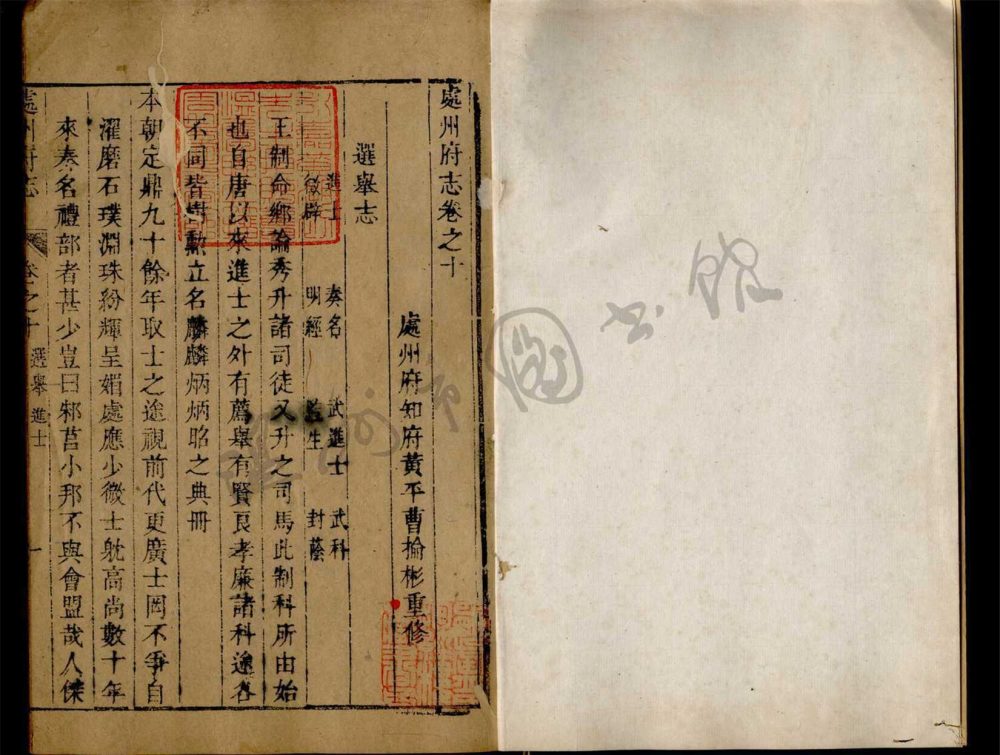 處州府志卷之十
處州府知府黃平曹掄彬重修
選舉志
進士　奏名　武進士　武科
徵辟　明經　監生　封蔭
王制命鄉論秀升諸司徒又升之司馬此制科所由始
也自唐以來進士之外有薦舉有賢良孝廉諸科途各
不同皆樹勳立名麟麟炳炳昭之典冊
本朝定鼎九十餘年取士之途視前代更廣士罔不爭自
濯磨石璞淵珠紛輝呈媚處應少微士躭高尚數十年
來奏名禮部者甚少豈曰邾莒小邦不與會盟哉人傑
處州府志　卷之十　選舉 進士　一
圖書館